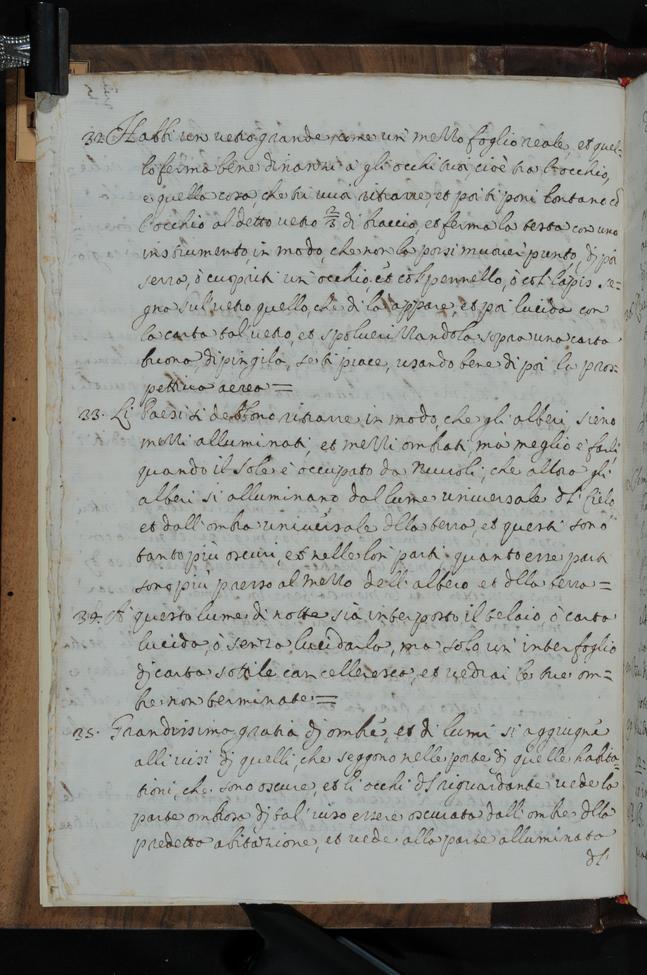 32. Habbi un uetro grande come un' mezzo foglio reale, et quel-
lo ferma bene dinanzi a gli occhi tuoi cioè tra l'occhio,
e quella cosa, che tu uuoi ritrarre, et poi ti poni lontano cõ
l'occhio al detto uetro 2/3 di braccio, et ferma la testa con uno
instrumento, in modo, che non la possi muouer' punto, dj poi
serra, ò cuopriti un' occhio, et col pennello, ò col lapis se-
gna sul uetro quello, che di là appare, et poi lucida con
la carta tal uetro, et spoluerizzandola sopra una carta
buona, dipingila, se ti piace, usando bene di poi la pros-
pettiua aerea =
33. Li Paesi si debbono ritrarre in modo, che gli alberi sieno
mezzi alluminati, et mezzi ombrati, ma meglio è farli
quando il Sole è occupato da Nuuoli, che allora gli
alberi si alluminano dal lume uniuersale dl' Cielo,
et dall' ombra uniuersale dlla terra, et questi sono
tanto più oscuri, et nelle lor' parti quanto esse parti
sono più presso al mezzo dell' albero et dlla terra =
34. A' questo lume di notte sia interposto il telaio, ò carta
lucida, ò senza lucidarla, ma solo un' interfoglio
dj carta sottile cancelleresca, et uedrai le tue om-
bre non terminate =
35. Grandissima gratia dj ombre, et di lumi si aggiugne
alli uisi dj quelli, che seggono nelle porte di quelle habita-
tioni, che sono oscure, et li occhi dl' riguardante uede la
parte ombrosa dj tal' uiso essere oscurata dall' ombre dlla
predetta abitazione, et uede alla parte alluminata
dl'